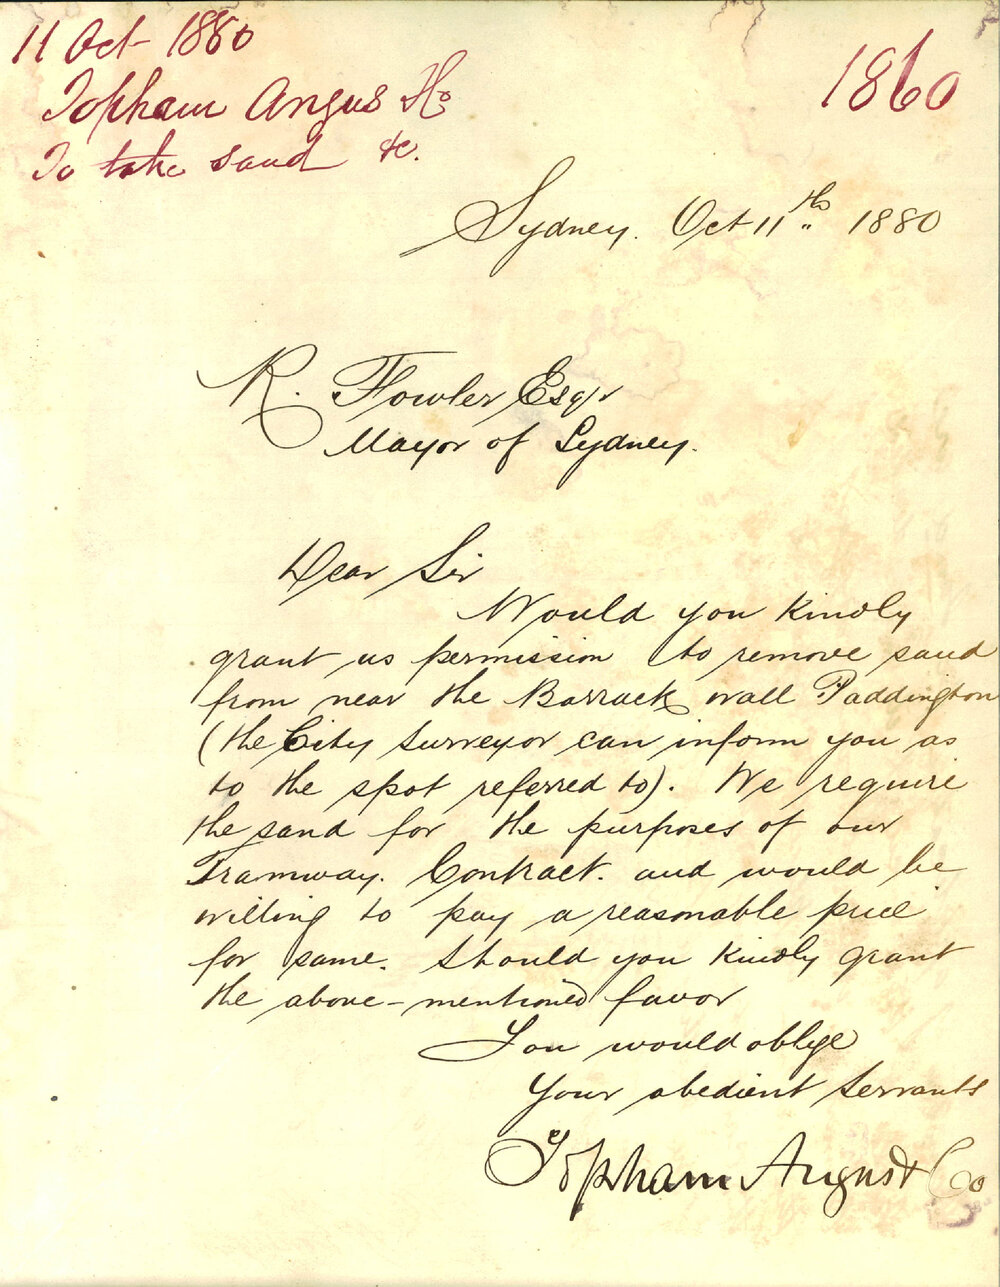 11 Oct 1880
Topham Angus & Co
To take sand &c.
1860
Sydney. Oct 11th 1880
R. Fowler Esqr
Mayor of Sydney.
Dear Sir
Would you kindly
grant us permission to remove sand
from near the Barrack wall Paddington
(the City Surveyor can inform you as
to the spot referred to). We require
the sand for the purposes of our
Tramway. Contract. and would be
willing to pay a reasonable price
for same. Should you kindly grant
the above-mentioned favor
You would oblige
Your obedient Servants
Topham Angus & Co